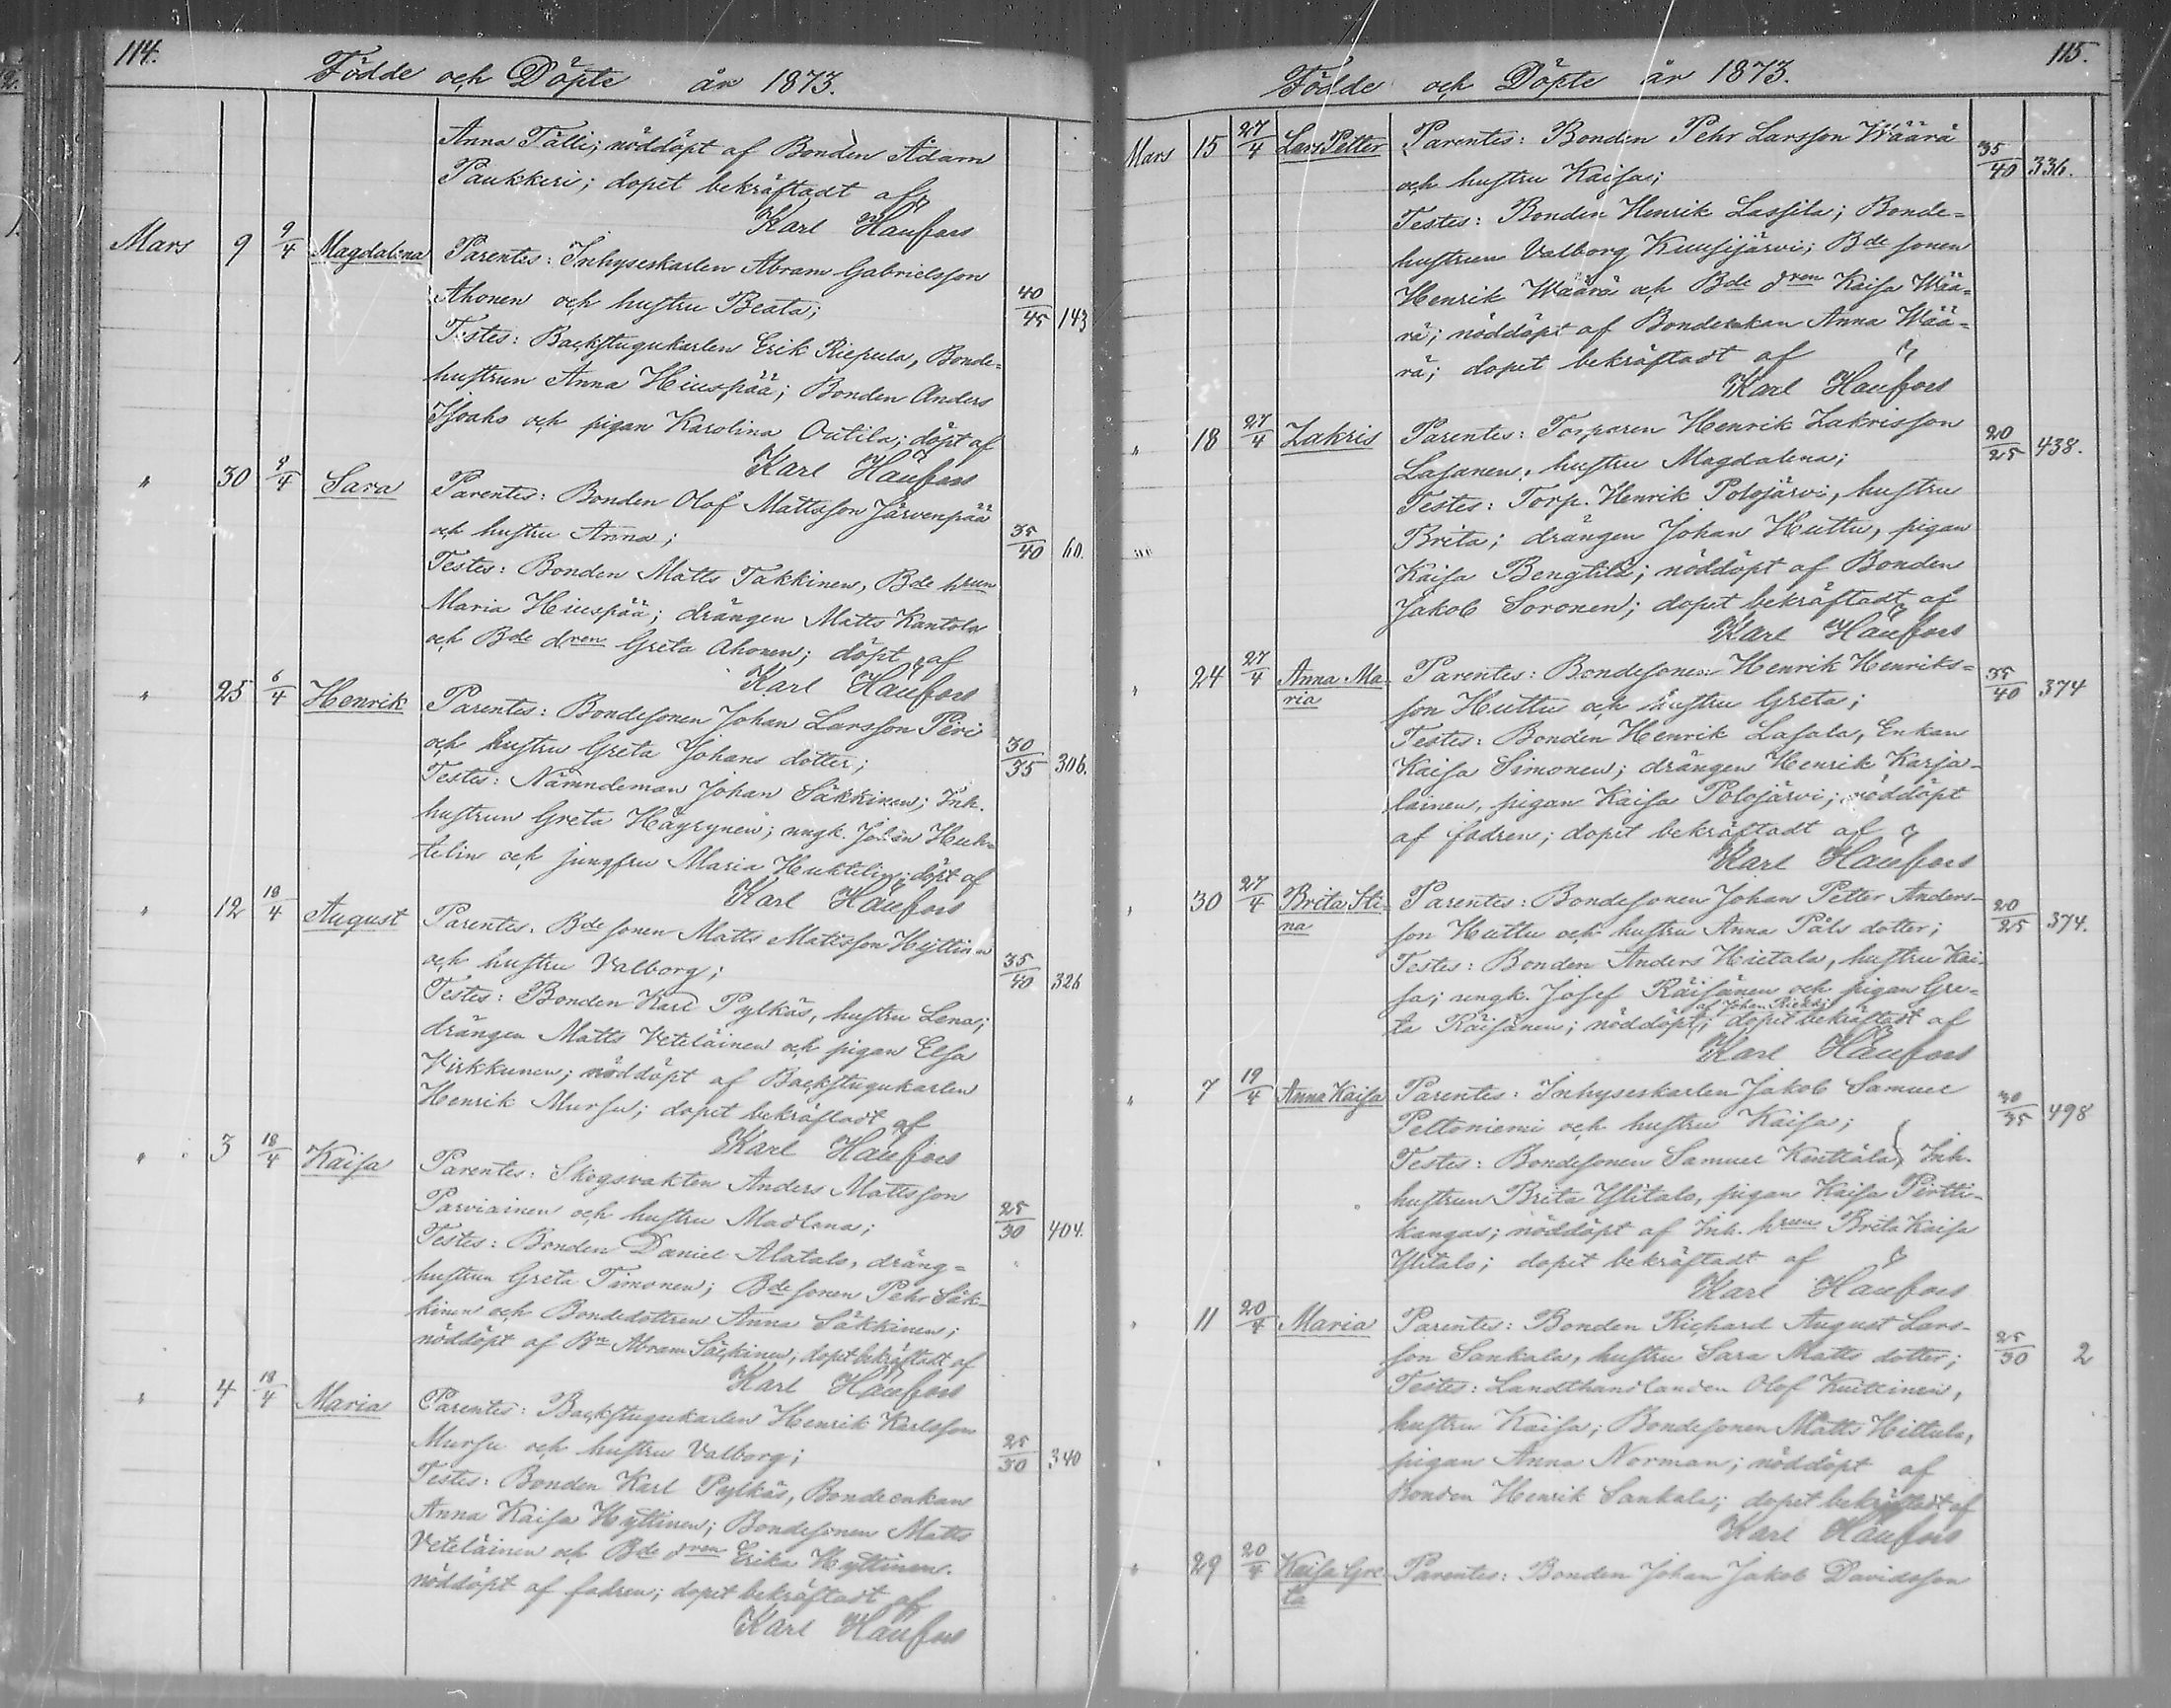 114.
Födde och Döpte år 1873.
Anna Tälli; nöddöpt af Bonden Adam
Paukkeri; dopet bekräftadt af
Karl Haufors
Mars 9 9/4 Magdalena Parentes: Inhyseskarlen Abram Gabrielsson
Ahonen och hustru Beata; 40/45 143
Testes: Backstugukarlen Erik Riepula, Bonde-
hustrun Anna Hiuspää; Bonden Anders
Isoaho och pigan Karolina Outila; döpt af
Karl Haufors
" 30 4/4 Sara Parentes: Bonden Olof Mattsson Järvenpää
och hustru Anna; 35/40 60.
Testes: Bonden Matts Takkinen, Bde hrun
Maria Hiuspää; drängen Matts Kantola
och Bde dren Greta Ahonen; döpt af
Karl Haufors
" 25 6/4 Henrik Parentes: Bondesonen Johan Larsson Piri
och hustru Greta Johans dotter; 30/35 306.
Testes: Nämndeman Johan Säkkinen; Inh.
hustrun Greta Häyrynen; ungk. Johan Huh-
telin och jungfru Maria Huktelin; döpt af
Karl Haufors
" 12 18/4 August Parentes: Bde sonen Matts Mattsson Hyttinen
och hustru Valborg; 35/40 326
Testes: Bonden Karl Pylkäs, hustru Lena;
drängen Matts Veteläinen och pigan Elsa
Virkkunen; nöddöpt af Backstugukarlen
Henrik Mursu; dopet bekräftadt af
Karl Haufors
" 3 18/4 Kaisa Parentes: Skogsvakten Anders Mattsson
Parviainen och hustru Madlena; 25/30 404.
Testes: Bonden Daniel Alatalo, dräng-
hustrun Greta Timonen; Bde sonen Pehr Säk-
kinen och Bondedottren Anna Säkkinen;
nöddöpt af Bn Abram Säkkinen; dopet bekräftadt af
Karl Haufors
" 4 18/4 Maria Parentes: Backstugukarlen Henrik Karlsson
Mursu och hustru Valborg; 25/30 340
Testes: Bonden Karl Pylkäs, Bondeenkan
Anna Kaisa Hyttinen; Bondesonen Matts
Veteläinen och Bde dren Erika Hyttinen.
nöddöpt af fadren; dopet bekräftadt af
Karl Haufors
115.
Födde och Döpte år 1873.
Mars 15 27/4 Lars Petter Parentes: Bonden Pehr Larsson Wäärä 35/40 336.
och hustru Kaisa;
Testes: Bonden Henrik Lassila; Bonde-
hustrun Valborg Kuusijärvi; Bde sonen
Henrik Wäärä och Bde dren Kaisa Wää-
rä; nöddöpt af Bondenkan Anna Wää-
rä; dopet bekräftadt af
Karl Haufors
" 18 27/4 Zakris Parentes: Torparen Henrik Zakrisson 20/25 438.
Lasanen, hustru Magdalena;
Testes: Torp. Henrik Polojärvi, hustru
Brita; drängen Johan Huttu, pigan
Kaisa Bengtila; nöddöpt af Bonden
Jakob Soronen; dopet bekräftadt af
Karl Haufors
" 24 27/4 Anna Ma- Parentes: Bondesonen Henrik Henriks- 35/40 374
ria son Huttu och hustru Greta;
Testes: Bonden Henrik Lasala, Enkan
Kaisa Simonen; drängen Henrik Karja-
lainen, pigan Kaisa Polojärvi; nöddöpt
af fadren; dopet bekräftadt af
Karl Haufors
" 30 27/4 Brita Sti- Parentes: Bondesonen Johan Petter Anders- 20/25 374.
na son Huttu och hustru Anna Påls dotter;
Testes: Bonden Anders Hietala, hustru Kai-
sa; ungk. Josef Räisänen och pigan Gre-
af Johan Riekki
ta Räisänen; nöddöpt; dopet bekräftadt af
Karl Haufors
" 7 19/4 Anna Kaisa Parentes: Inhyseskarlen Jakob Samuel 30/35 498
Peltoniemi och hustru Kaisa;
Testes: Bondesonen Samuel Kenttälä, Inh.
hustrun Brita Ylitalo, pigan Kaisa Pirtti-
kangas; nöddöpt af Inh. hrun Brita Kaisa
Ylitalo; dopet bekräftadt af
Karl Haufors
" 11 20/4 Maria Parentes: Bonden Richard August Lars-
son Sankala, hustru Sara Matts dotter; 25/30 2
Testes: Landthandlanden Olof Kuttinen,
hustru Kaisa; Bondesonen Matts Hittula,
pigan Anna Norman; nöddöpt af
Bonden Henrik Sankala; dopet bekräftadt af
Karl Haufors
" 29 20/4 Kaisa Gre- Parentes: Bonden Johan Jakob Davidsson
ta